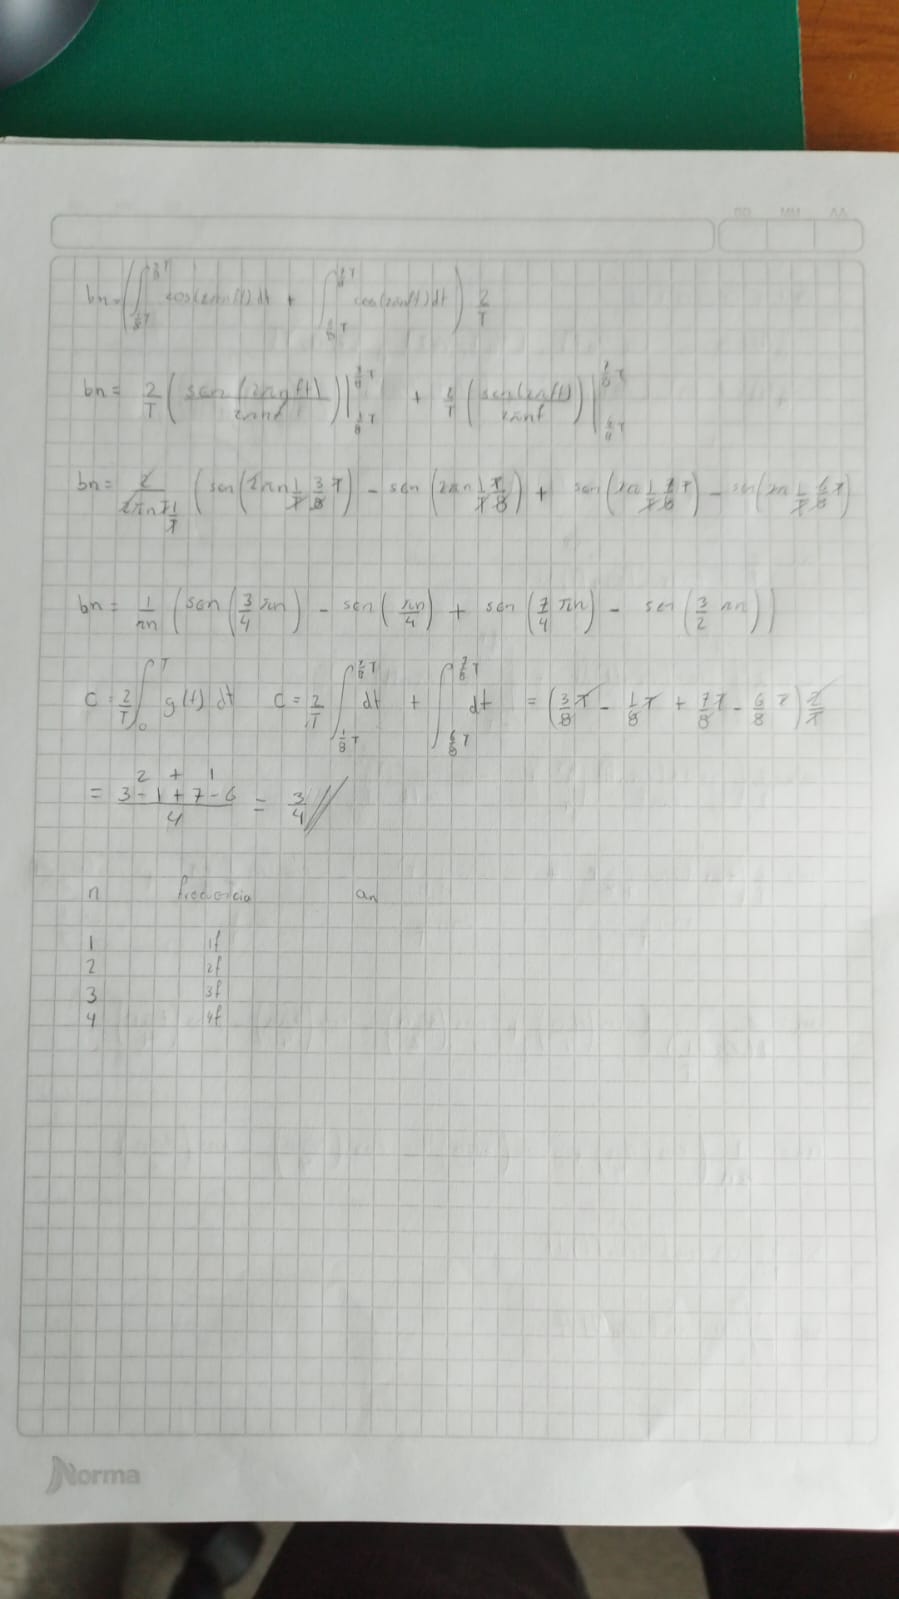 DD MM AA
bn = ( ∫_{1/8 T}^{3/8 T} cos(2πnft) dt + ∫_{6/8 T}^{7/8 T} cos(2πnft) dt ) 2/T
bn = 2/T ( sen(2πnft) / 2πnf ) |_{1/8 T}^{3/8 T} + 2/T ( sen(2πft) / 2πnf ) |_{6/8 T}^{7/8 T}
bn = 2 / 2πn T 1/T ( sen( 2πn 1/T 3/8 T ) - sen ( 2πn 1/T T/8 ) + sen( 2π 1/T 7/8 T ) - sen( 2π 1/T 6/8 T )
bn = 1/πn ( sen ( 3/4 πn ) - sen ( πn/4 ) + sen ( 7/4 πn ) - sen ( 3/2 πn ) )
C = 2/T ∫_0^T g(t) dt C = 2/T ∫_{1/8 T}^{3/8 T} dt + ∫_{6/8 T}^{7/8 T} dt = ( 3/8 T - 1/8 T + 7/8 T - 6/8 T ) 2/T
2 + 1
= 3 - 1 + 7 - 6 / 4 = 3/4 //
n frecuencia an
1 1f
2 2f
3 3f
4 4f
Norma